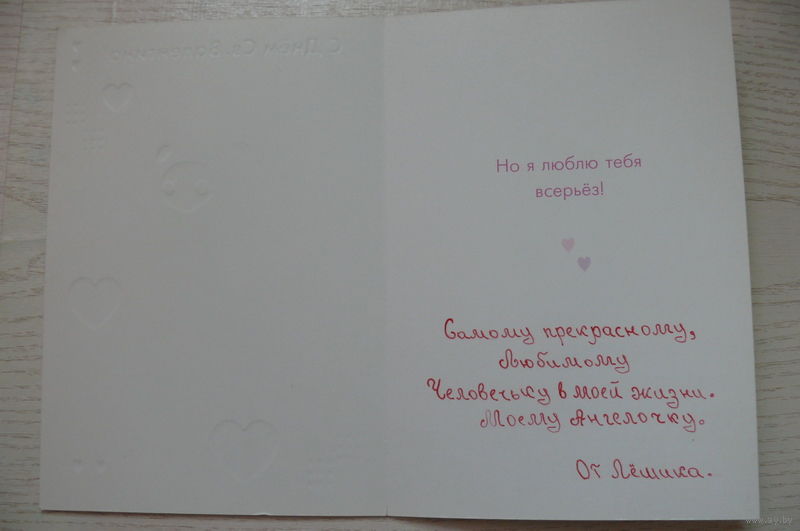 С Днём Св. Валентина
Но я люблю тебя
всерьёз!
Самому прекрасному,
Любимому
Человечьку в моей жизни.
Моему Ангелочку.
От Лёшика.
www.ay.by